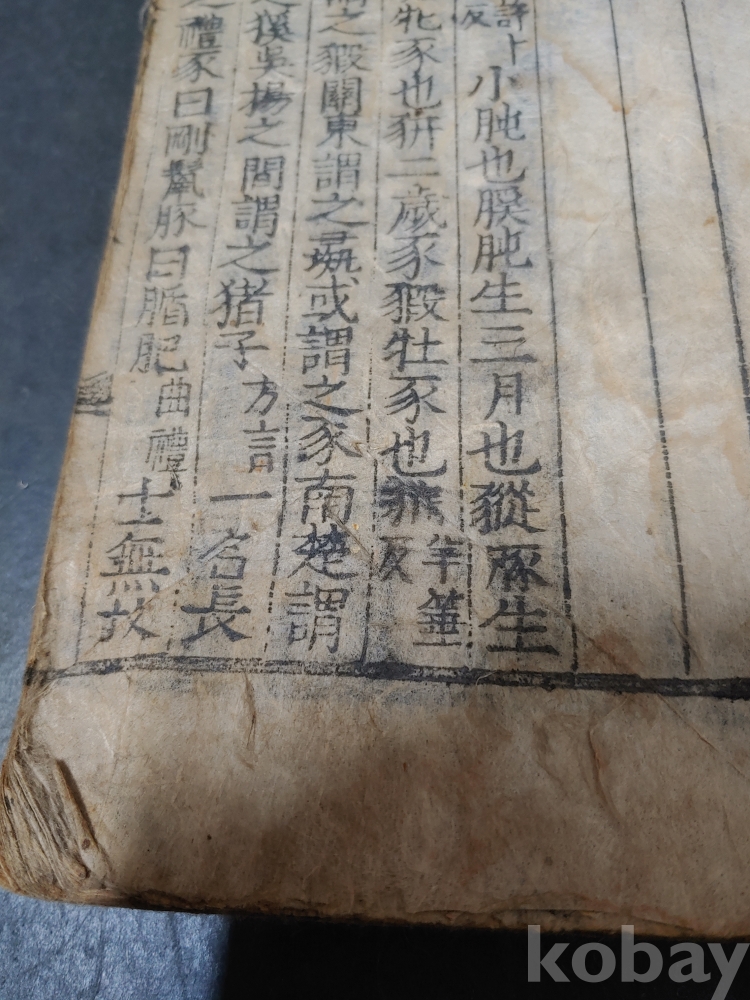 許卜反 小肫也䐁肫生三月也豵豚生
牝豕也豜二歲豕豭牡豕也 羊箠反
之豭關東謂之彘或謂之豕南楚謂
豯吳揚之間謂之猪子 方言 一名長
禮豕曰剛鬣豚曰腯肥 曲禮 士無故
kobay